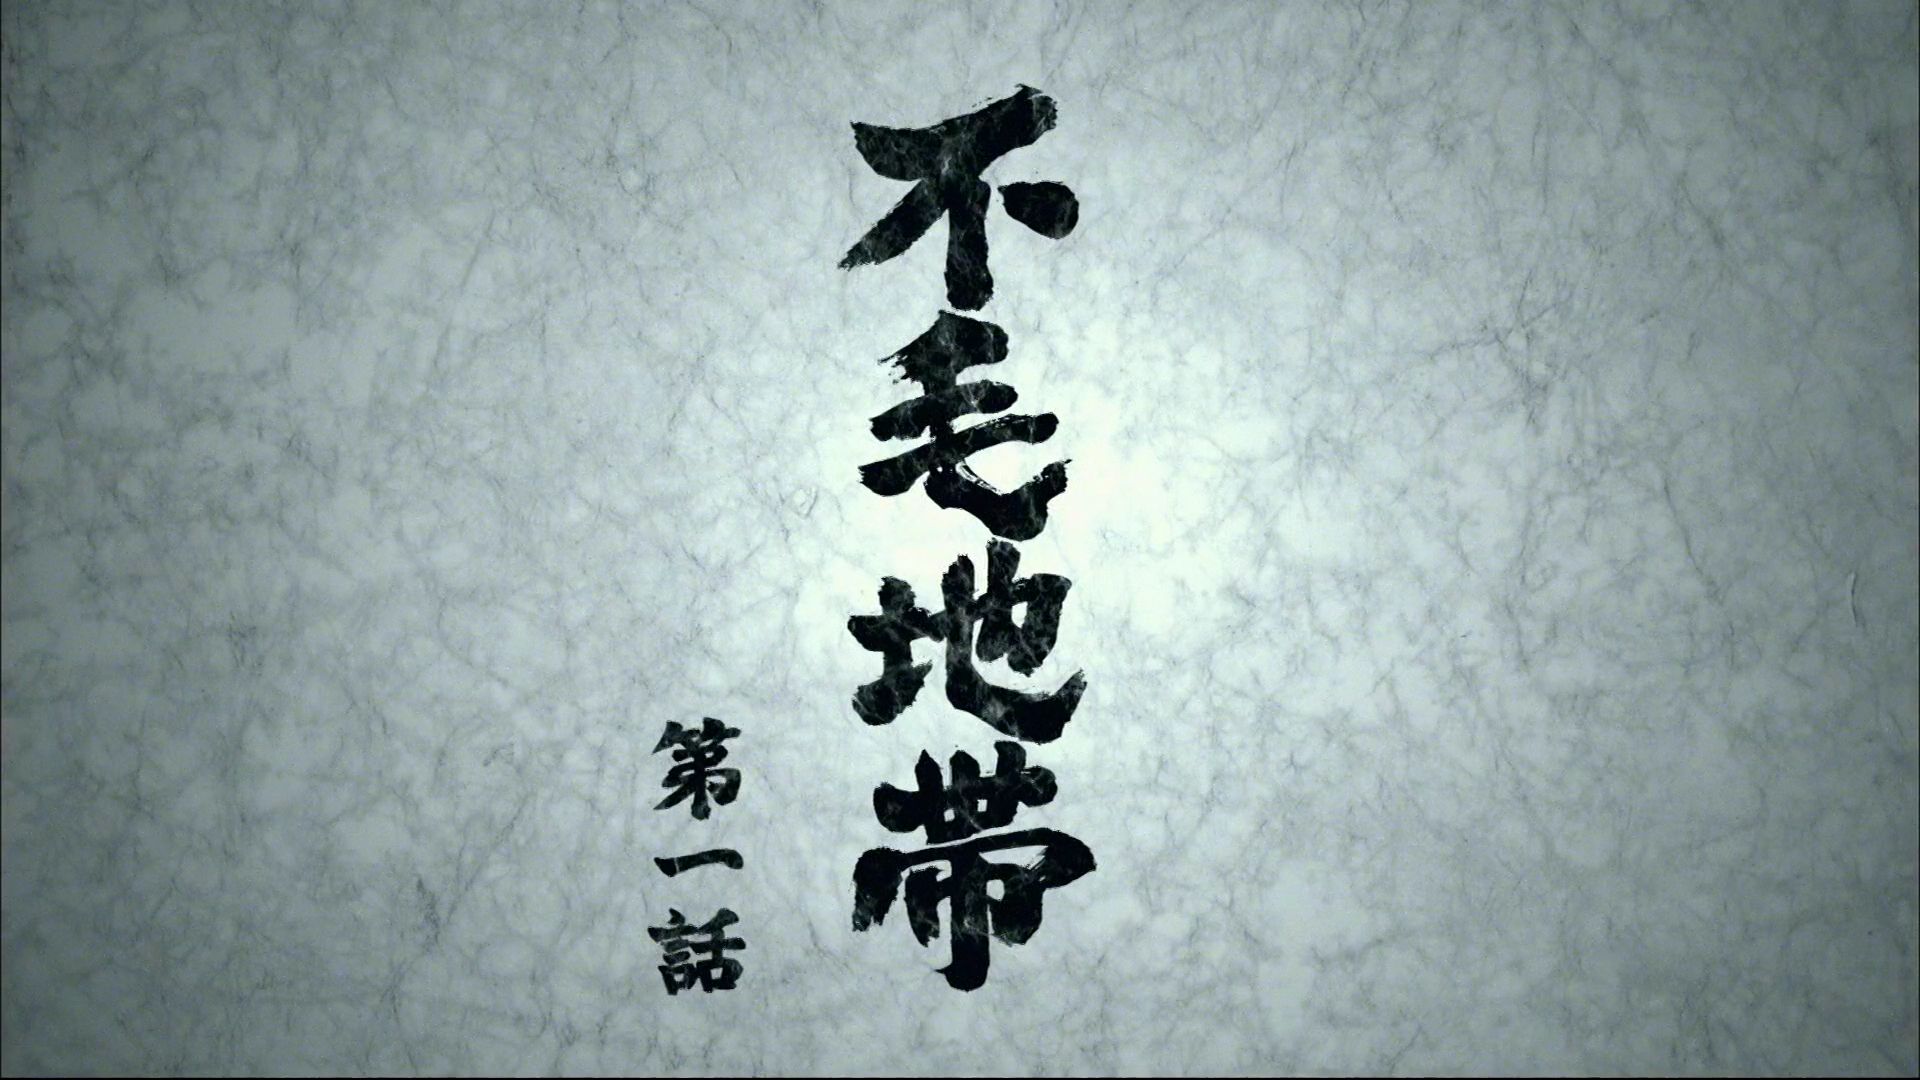 不毛地帯
第一話